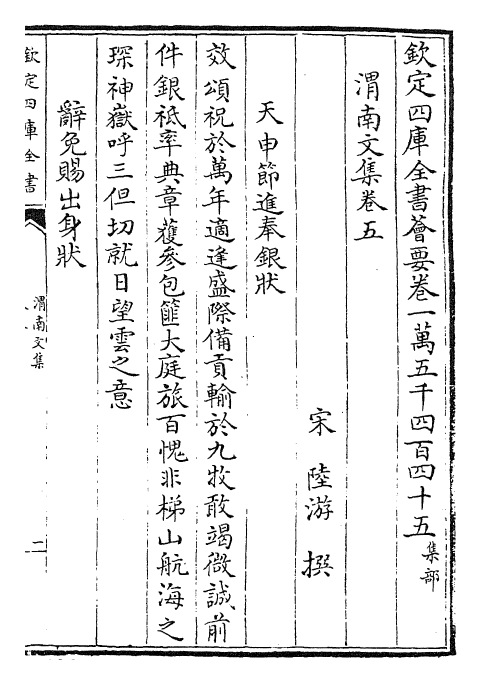 欽定四庫全書薈要卷一萬五千四百四十五集部
渭南文集卷五
宋陸游撰
天申節進奉銀狀
效頌祝於萬年適逢盛際備貢輸於九牧敢竭微誠前
件銀祗率典章獲參包篚大庭旅百愧非梯山航海之
琛神嶽呼三但切就日望雲之意
辭免賜出身狀
欽定四庫全書
渭南文集
二